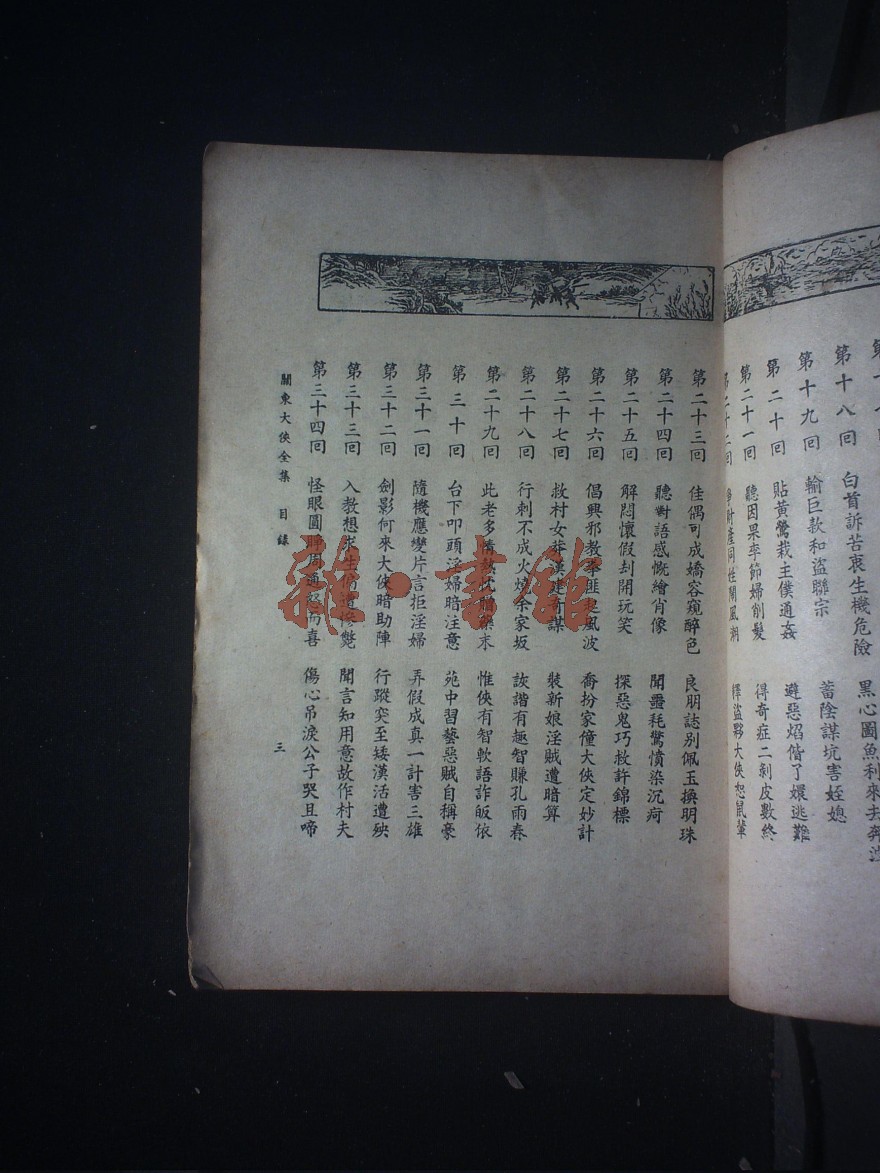 第十八回　白首訴苦衷生機危險　黑心圖魚利來去奔波
第十九回　輸巨款和盜聯宗　蓄陰謀坑害姪媳
第二十回　貼黃鶯栽主僕通姦　避惡焰偕了嬛逃難
第二十一回　聽因果李節婦削髮　得奇症二剝皮數終
第二十二回　爭財產同姓鬧風潮　釋盜夥大俠恕鼠輩
第二十三回　佳偶可成嬌容窺醉色　良朋誌別佩玉換明珠
第二十四回　聽對語感慨繪肖像　聞噩耗驚憤染沉疴
第二十五回　解悶懷假刦開玩笑　探惡鬼巧救許錦標
第二十六回　倡興邪教拳匪起風波　喬扮家僮大俠定妙計
第二十七回　救村女莽漢建奇謀　裝新娘淫賊遭暗算
第二十八回　行刺不成火燒余家坂　詼諧有趣智賺孔雨春
第二十九回　此老多情　末　惟俠有智軟語詐皈依
第三十回　台下叩頭淫婦暗注意　苑中習藝惡賊自稱豪
第三十一回　隨機應變片言拒淫婦　弄假成真一計害三雄
第三十二回　劍影何來大俠暗助陣　行蹤突至矮漢活遭殃
第三十三回　入教想求生偏遭慘斃　聞言知用意故作村夫
第三十四回　怪眼圓睜周通怒而喜　傷心吊淚公子哭且啼
關東大俠全集　目錄　三
雜·書館